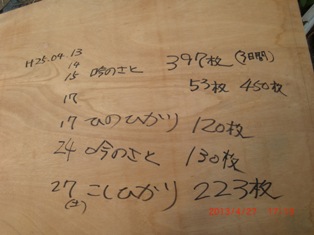 H25.04.13
14
15 吟のさと 397枚 (3日間)
53枚 450枚
17
17 ひのひかり 120枚
24 吟のさと 130枚
27 こしひかり 223枚
(土)